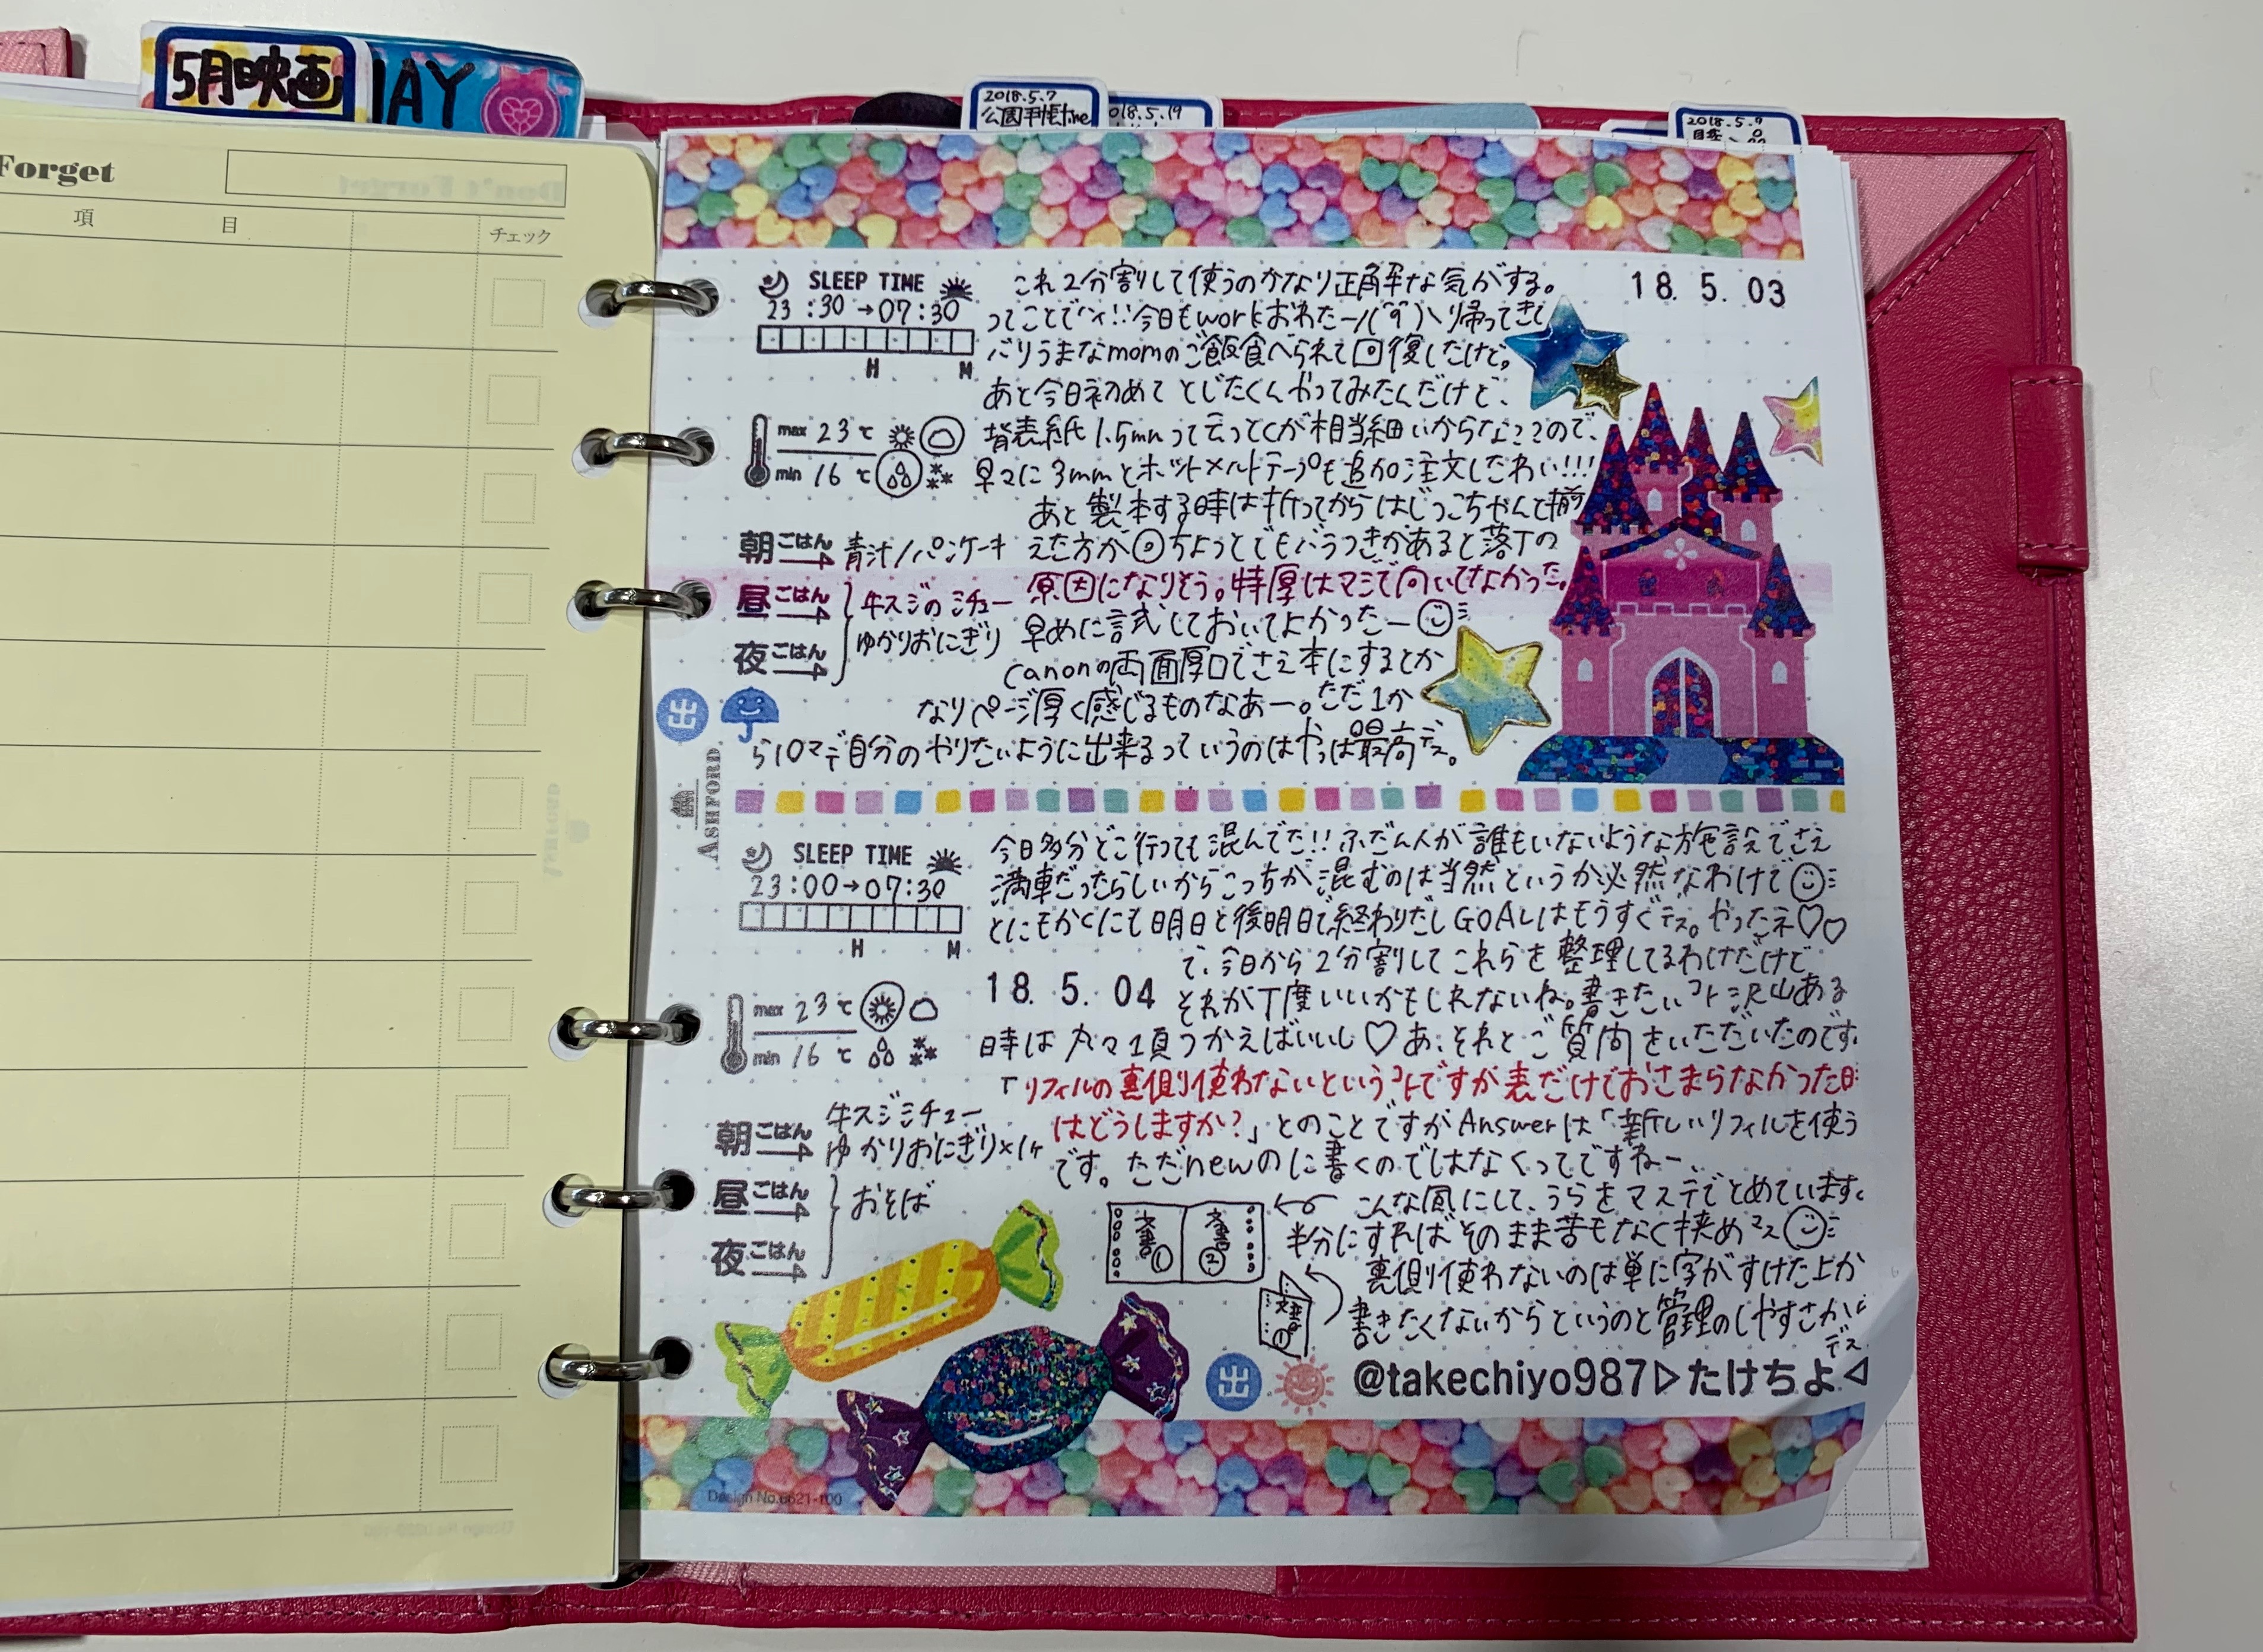 5月映画
MAY
2018.5.7
公園手帳time
2018.5.19
2018.5.9
Forget
項 目
チェック
18. 5. 03
SLEEP TIME
23:30→07:30
H M
max 23℃
min 16℃
朝ごはん 青汁/パンケーキ
昼ごはん 牛スジのシチュー
夜ごはん ゆかりおにぎり
出
これ2分割して使うのかなり正解な気がする。
ってことでハイ!!今日もworkおわたー/(^q^)\帰ってきて
バリうまなmomのご飯食べられて回復したけど。
あと今日初めてとじたくんやってみたんだけど、
背表紙1.5mmって云っとくが相当細いからな??ので、
早々に3mmとホットメルトテープも追加注文したわい!!!
あと製本する時は折ってからはじっこちゃんと揃
えた方が◎ちょっとでもバラつきがあると落丁の
原因になりそう。特厚はマジで向いてなかった。
早めに試しておいてよかったー
canonの両面厚口でさえ本にするとか
なりページ厚く感じるものなあー。ただ1か
ら10マデ自分のやりたいように出来るっていうのはやっぱ最高デス。
ASHFORD
SLEEP TIME
23:00→07:30
H M
18. 5. 04
max 23℃
min 16℃
朝ごはん 牛スジシチュー
ゆかりおにぎり×1ヶ
昼ごはん おそば
夜ごはん
今日多分どこ行っても混んでた!!ふだん人が誰もいないような施設でさえ
満車だったらしいからこっちが混むのは当然というか必然なわけで
とにもかくにも明日と後明日で終わりだしGOALはもうすぐデス。やったネ♡♡
で、今日から2分割してこれらを整理してるわけだけど
それが丁度いいかもしれないね。書きたいコト沢山ある
時は丸々1頁つかえばいいし♡あ、それとご質問をいただいたのです。
「リフィルの裏側使わないというコトですが表だけでおさまらなかった日
はどうしますか?」とのことですがAnswerは「新しいリフィルを使う
です。ただnewのに書くのではなくってですねー、
こんな風にして、うらをマステでとめています。
文書① 文書②
半分にすればそのまま苦もなく挟めマス
裏側使わないのは単に字がすけた上か
文書①
書きたくないからというのと管理のしやすさから
デス
出
@takechiyo987▷たけちよ◁
Design No.8621-100